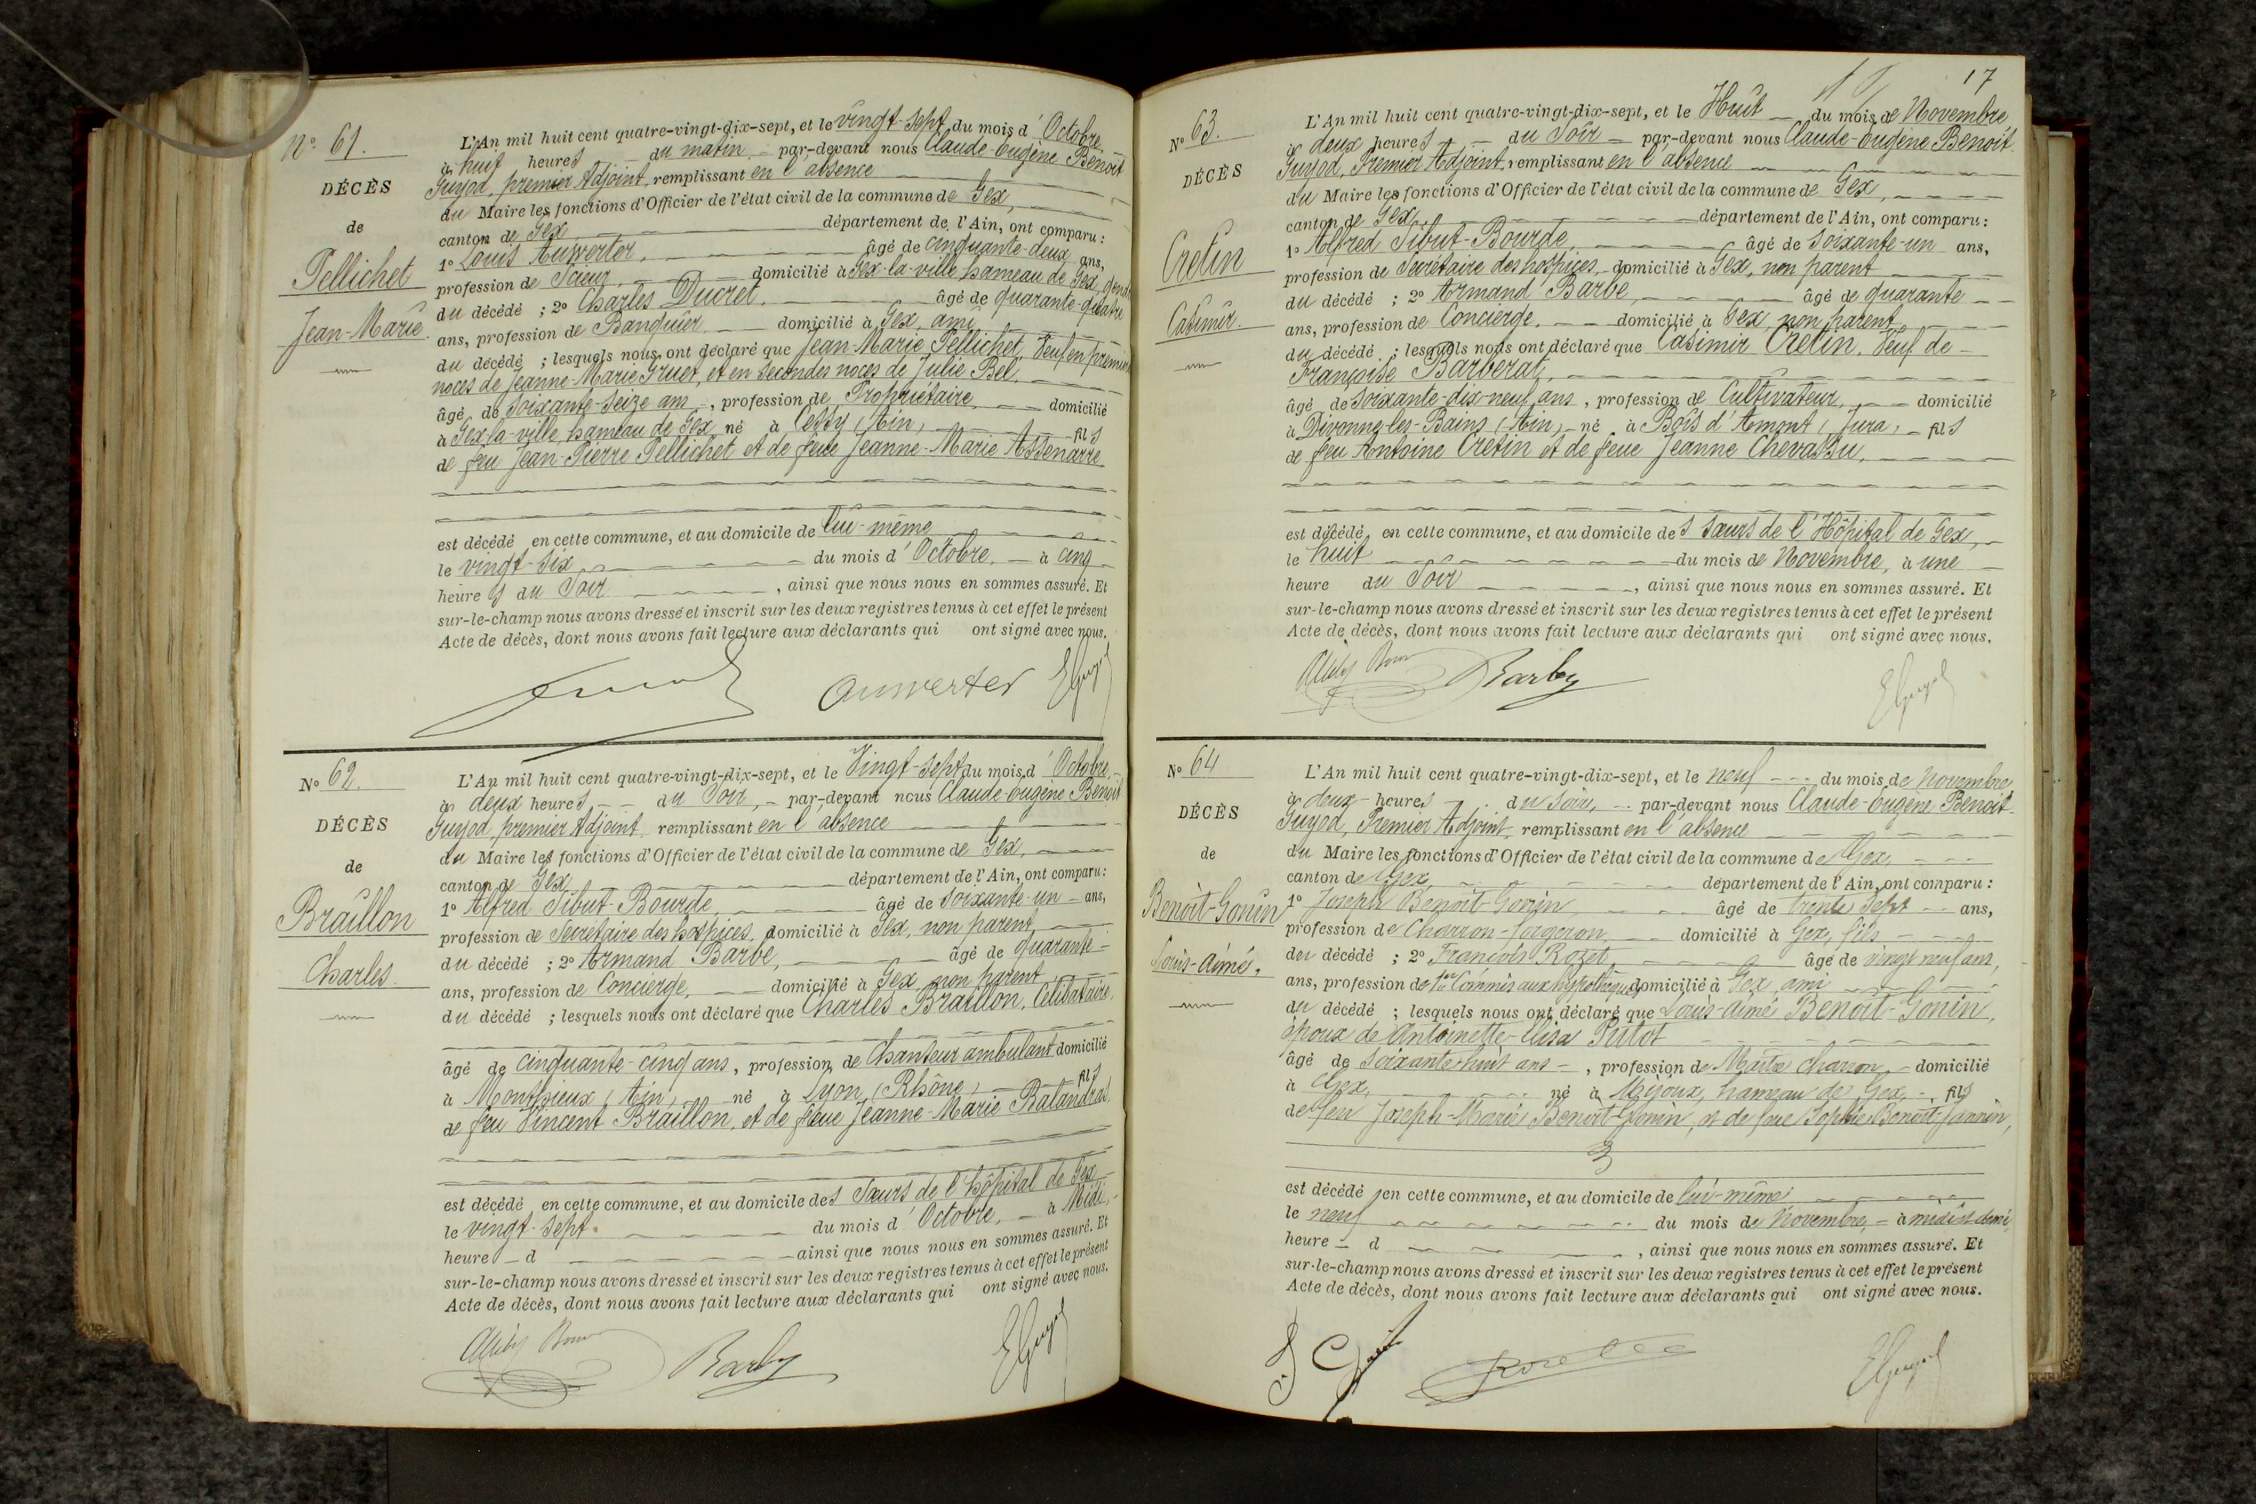 N° 61.
DÉCÈS
de
Pellichet
Jean-Marie.
L'An mil huit cent quatre-vingt-dix-sept, et le vingt-sept du mois d'Octobre,
à huit heures du matin, par-devant nous Claude-Eugène Benoit
Guyod, premier Adjoint, remplissant en l'absence
du Maire les fonctions d'Officier de l'état civil de la commune de Gex,
canton de Gex, département de l'Ain, ont comparu :
1° Louis Auwerter, âgé de cinquante-deux ans,
profession de Scieur, domicilié à Gex-la-ville, hameau de Gex,
du décédé ; 2° Charles Ducret, âgé de quarante-quatre
ans, profession de Banquier, domicilié à Gex, ami
du décédé ; lesquels nous ont déclaré que Jean-Marie Pellichet, Veuf en premières
noces de Jeanne-Marie Gruet, et en secondes noces de Julie Bel,
âgé de soixante-seize ans, profession de Propriétaire, domicilié
à Gex-la-ville, hameau de Gex, né à Cessy (Ain) fils
de feu Jean-Pierre Pellichet et de feue Jeanne-Marie Assenarre
est décédé en cette commune, et au domicile de lui-même
le vingt-six du mois d'Octobre, à cinq
heures du Soir, ainsi que nous nous en sommes assuré. Et
sur-le-champ nous avons dressé et inscrit sur les deux registres tenus à cet effet le présent
Acte de décès, dont nous avons fait lecture aux déclarants qui ont signé avec nous.
Auwerter EGuyod
N° 62.
DÉCÈS
de
Braillon
Charles.
L'An mil huit cent quatre-vingt-dix-sept, et le Vingt-sept du mois d'Octobre,
à deux heures du Soir, par-devant nous Claude-Eugène Benoit
Guyod, premier Adjoint remplissant en l'absence
du Maire les fonctions d'Officier de l'état civil de la commune de Gex,
canton de Gex département de l'Ain, ont comparu :
1° Alfred Sibut-Bourde, âgé de soixante-un ans,
profession de Secrétaire des hospices, domicilié à Gex, non parent,
du décédé ; 2° Armand Barbe, âgé de quarante
ans, profession de Concierge, domicilié à Gex non parent
du décédé ; lesquels nous ont déclaré que Charles Braillon, Célibataire,
âgé de cinquante-cinq ans, profession de Chanteur ambulant domicilié
à Monthieux (Ain), né à Lyon (Rhône) fils
de feu Vincent Braillon, et de feue Jeanne-Marie Balandras,
est décédé en cette commune, et au domicile des Sœurs de l'hôpital de Gex
le vingt-sept du mois d'Octobre, à Midi,
heure d ainsi que nous nous en sommes assuré. Et
sur-le-champ nous avons dressé et inscrit sur les deux registres tenus à cet effet le présent
Acte de décès, dont nous avons fait lecture aux déclarants qui ont signé avec nous.
Barby EGuyod
17
N° 63.
DÉCÈS
Cretin
Casimir.
L'An mil huit cent quatre-vingt-dix-sept, et le Huit du mois de Novembre
à deux heures du Soir par-devant nous Claude-Eugène Benoit
Guyod, Premier Adjoint, remplissant en l'absence
du Maire les fonctions d'Officier de l'état civil de la commune de Gex,
canton de Gex, département de l'Ain, ont comparu :
1° Alfred Sibut-Bourde, âgé de soixante-un ans,
profession de Secrétaire des hospices, domicilié à Gex, non parent
du décédé ; 2° Armand Barbe, âgé de quarante
ans, profession de Concierge, domicilié à Gex, non parent
du décédé ; lesquels nous ont déclaré que Casimir Cretin, Veuf de
Françoise Barberat,
âgé de soixante-dix-neuf ans, profession de Cultivateur, domicilié
à Divonne-les-Bains (Ain), né à Bois d'Amont (Jura) fils
de feu Antoine Cretin et de feue Jeanne Chevassu,
est décédé en cette commune, et au domicile des Sœurs de l'Hôpital de Gex,
le huit du mois de Novembre, à une
heure du Soir, ainsi que nous nous en sommes assuré. Et
sur-le-champ nous avons dressé et inscrit sur les deux registres tenus à cet effet le présent
Acte de décès, dont nous avons fait lecture aux déclarants qui ont signé avec nous.
Barby EGuyod
N° 64
DÉCÈS
de
Benoit-Gonin
Louis-Aimé,
L'An mil huit cent quatre-vingt-dix-sept, et le neuf du mois de Novembre,
à deux heures du soir, par-devant nous Claude-Eugène Benoit
Guyod, Premier Adjoint, remplissant en l'absence
du Maire les fonctions d'Officier de l'état civil de la commune de Gex,
canton de Gex département de l'Ain, ont comparu :
1° Joseph Benoit-Gonin, âgé de trente sept ans,
profession de Charron-forgeron, domicilié à Gex, fils
du décédé ; 2° François Rozet, âgé de vingt neuf ans,
ans, profession de 1er Commis aux hypothèques domicilié à Gex, ami
du décédé ; lesquels nous ont déclaré que Louis-Aimé Benoit-Gonin,
époux de Antoinette-Elisa Putot
âgé de soixante-huit ans, profession de Maître charron, domicilié
à Gex, né à Mijoux, hameau de Gex, fils
de feu Joseph-Marie Benoit-Gonin, et de feue Sophie Benoit-Jannin,
est décédé en cette commune, et au domicile de lui-même
le neuf du mois de Novembre, à midi et demi,
heure d, ainsi que nous nous en sommes assuré. Et
sur-le-champ nous avons dressé et inscrit sur les deux registres tenus à cet effet le présent
Acte de décès, dont nous avons fait lecture aux déclarants qui ont signé avec nous.
EGuyod